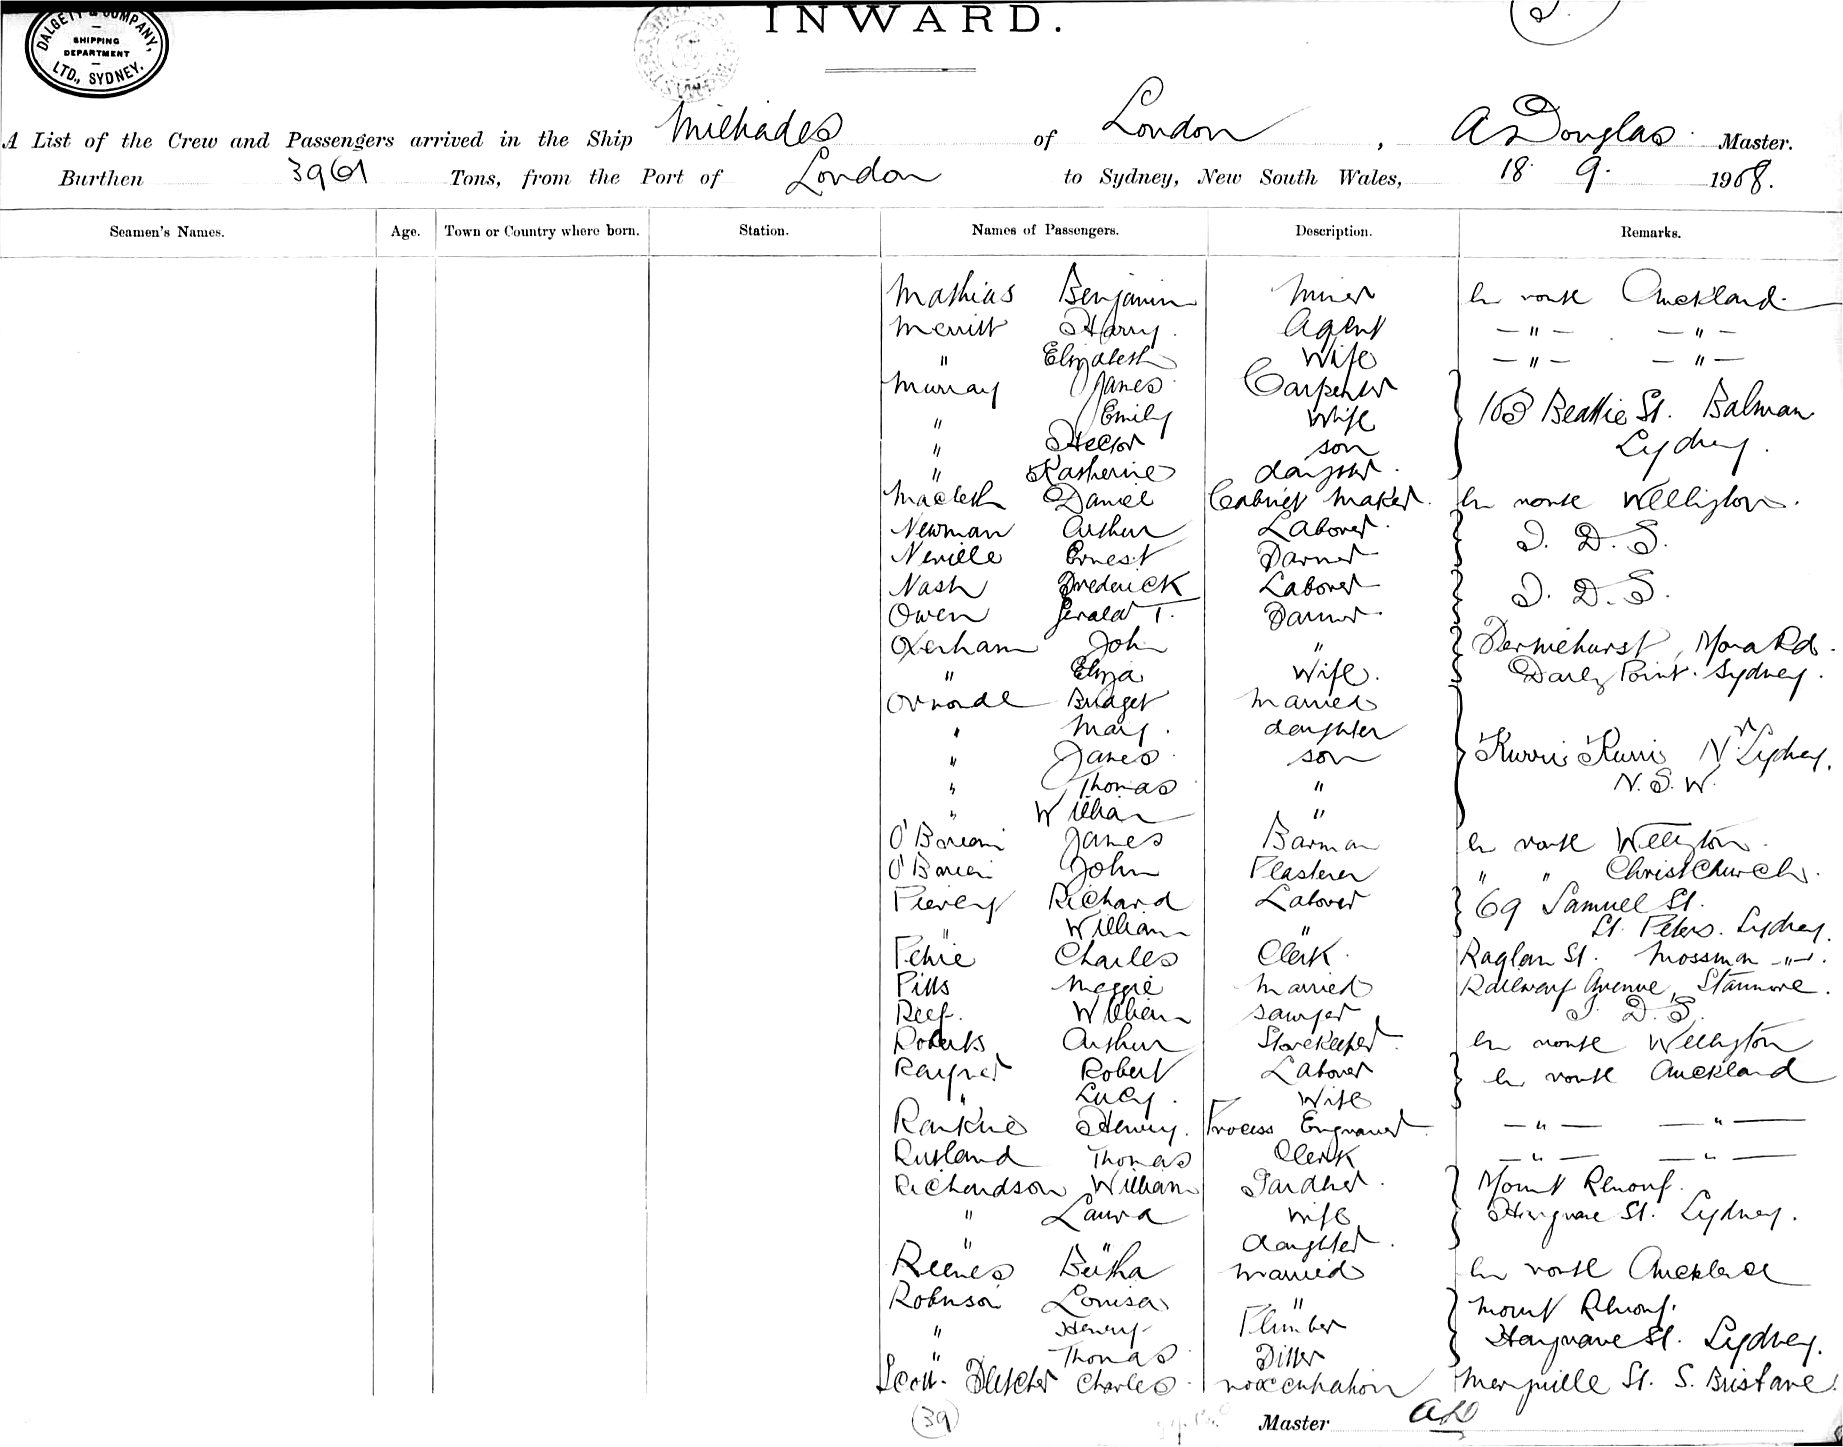 DALGETY & COMPANY, LTD., SYDNEY.
SHIPPING DEPARTMENT
INWARD.
2.
A List of the Crew and Passengers arrived in the Ship Miltiades of London, A L Douglas Master.
Burthen 3961 Tons, from the Port of London to Sydney, New South Wales, 18. 9. 1908.
Seamen's Names. Age. Town or Country where born. Station. Names of Passengers. Description. Remarks.
Mathias Benjamin Miner En route Auckland
Merritt Harry. Agent — " — — " —
" Elizabeth Wife — " — — " —
Murray James Carpenter
" Emily Wife 103 Beattie St. Balman
" Hector son Sydney.
" Katherine daughter.
Daniel Cabinet Maker. En route Wellington.
Newman Arthur Laborer. I. D. S.
Neville Ernest Farmer
Nash Frederick Laborer I. D. S.
Owen Gerald T. Farmer
Oxenham John " Mona Rd.
" Eliza Wife. Darley Point. Sydney.
Ormonde Bridget Married
" Mary. daughter
" James son Kurri Kurri Nr Sydney.
" Thomas " N. S. W.
" William "
James Barman En route Wellington.
John Plasterer " " ChristChurch.
Piercy Richard Laborer 69 Samuel St.
" William " St. Peters. Sydney.
Petrie Charles Clerk. Raglan St. Mossman — " —.
Pitts Maggie Married Railway Avenue, Stanmore.
Reef. William Sawyer I. D. S.
Roberts Arthur Storekeeper. En route Wellington
Rayner Robert Laborer En route Auckland
" Lucy. Wife
Rankine Henry. Process Engraver — " — — " —
Rutland Thomas Clerk — " — — " —
Richardson William Gardner. Mount Renouf.
" Laura Wife Hargrave St. Sydney.
" " daughter.
Reeves Bertha Married En route Auckland
Robinson Louisa " Mount Renouf.
" Henry Plumber Hargrave St. Sydney.
" Thomas Fitter
Scott-Fletcher Charles no occupation St. S. Brisbane.
39
Master ALD